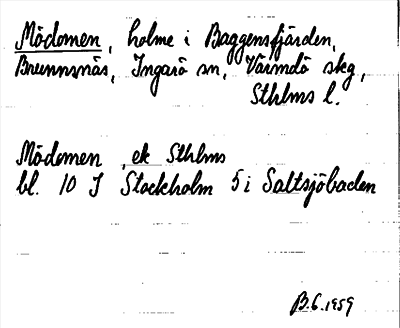 Mödomen, holme i Baggensfjärden,
Brunnsnäs, Ingarö sn, Värmdö skg,
Sthlms l.
Mödomen, ek Sthlms
bl. 10 J Stockholm 5 i Saltsjöbaden
B.G.1959